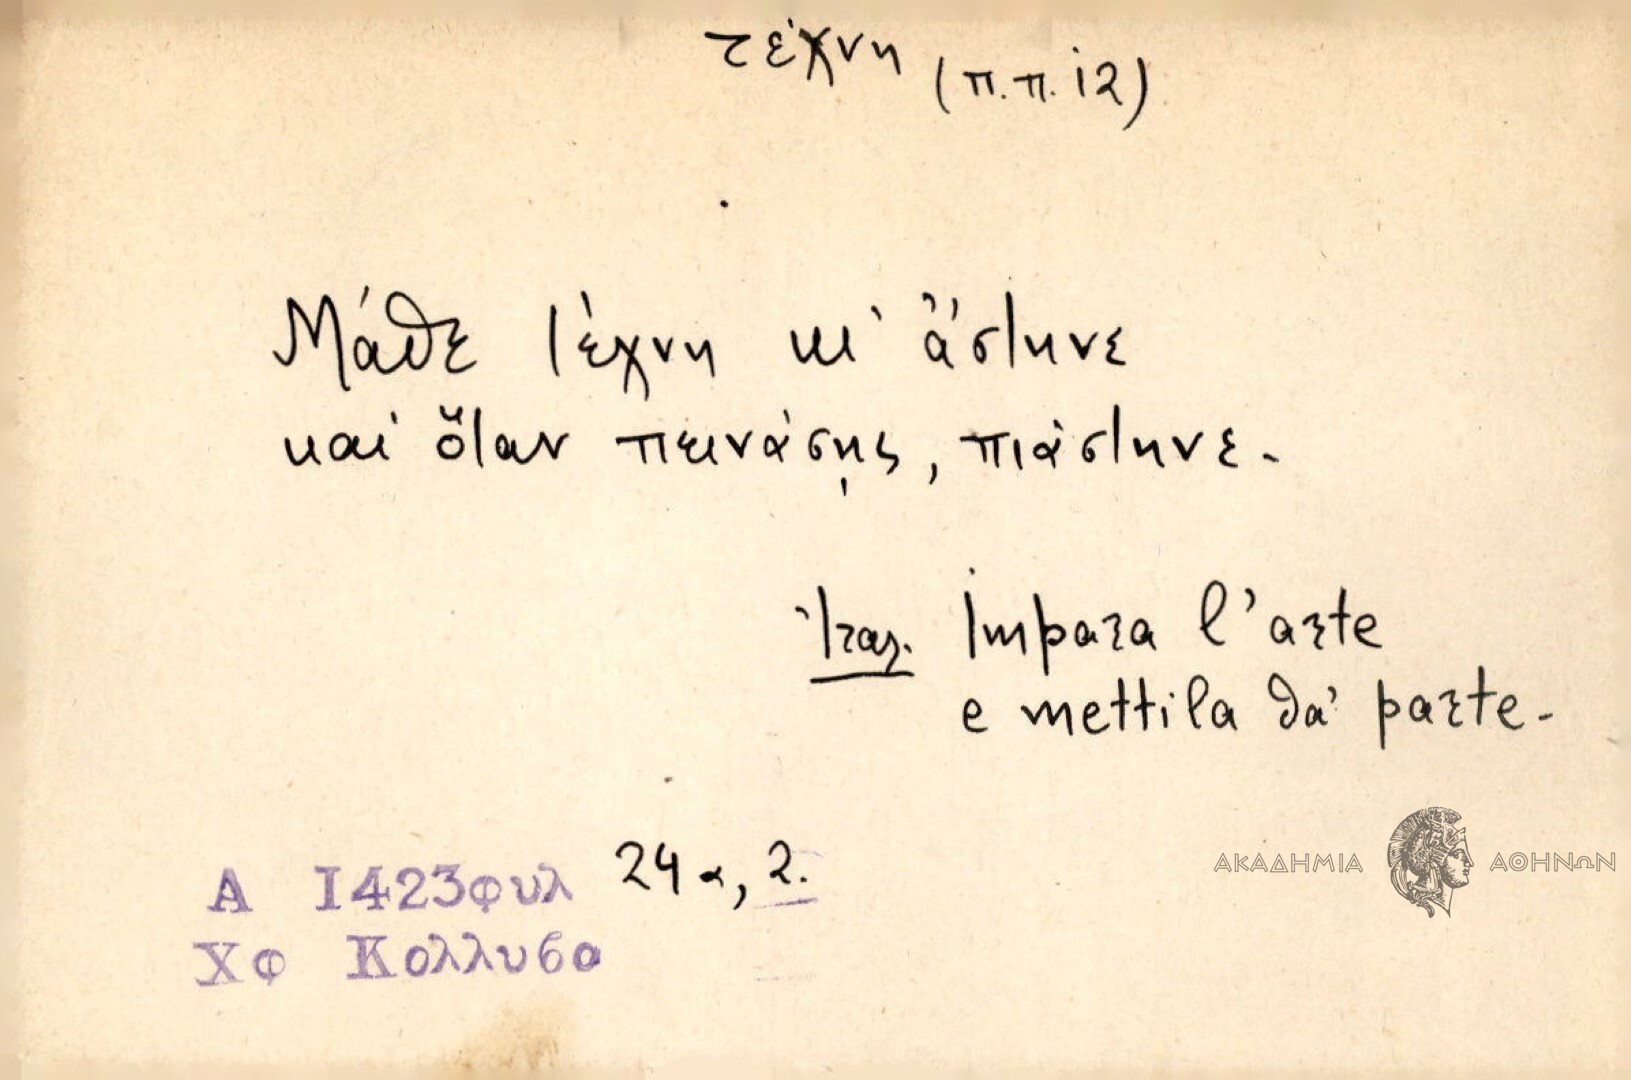 τέχνη (π.π. 12)
Μάθε τέχνη κι' ἄστηνε
καί ὅταν πεινάσῃς, πιάστηνε.
Ἰταλ. Impara l'arte
e mettila da' parte.
Α 1423φυλ 24α, 2.
Χφ Κολλυβα
ΑΚΑΔΗΜΙΑ ΑΘΗΝΩΝ